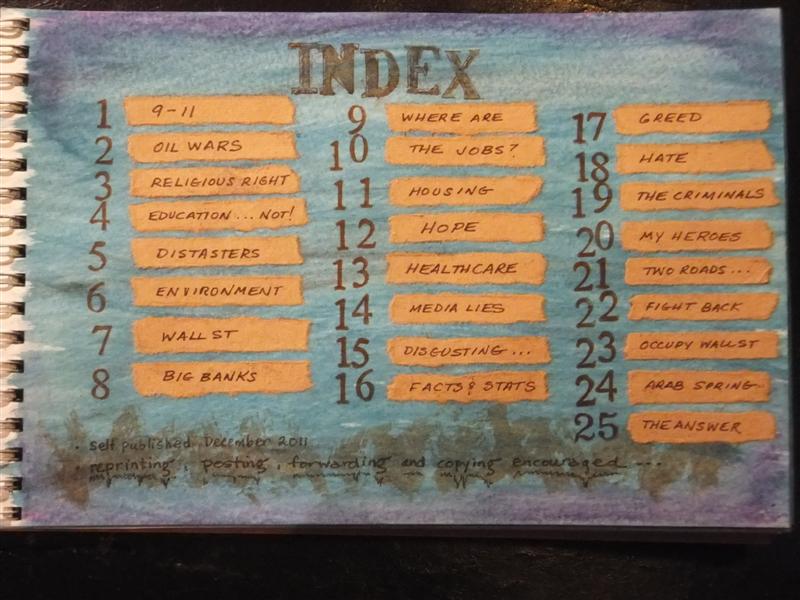 INDEX
1 9-11
2 OIL WARS
3 RELIGIOUS RIGHT
4 EDUCATION ... NOT!
5 DISTASTERS
6 ENVIRONMENT
7 WALL ST
8 BIG BANKS
9 WHERE ARE
10 THE JOBS?
11 HOUSING
12 HOPE
13 HEALTHCARE
14 MEDIA LIES
15 DISGUSTING ...
16 FACTS & STATS
17 GREED
18 HATE
19 THE CRIMINALS
20 MY HEROES
21 TWO ROADS ...
22 FIGHT BACK
23 OCCUPY WALL ST
24 ARAB SPRING
25 THE ANSWER
· self published December 2011
· reprinting, posting, forwarding and copying encouraged ...